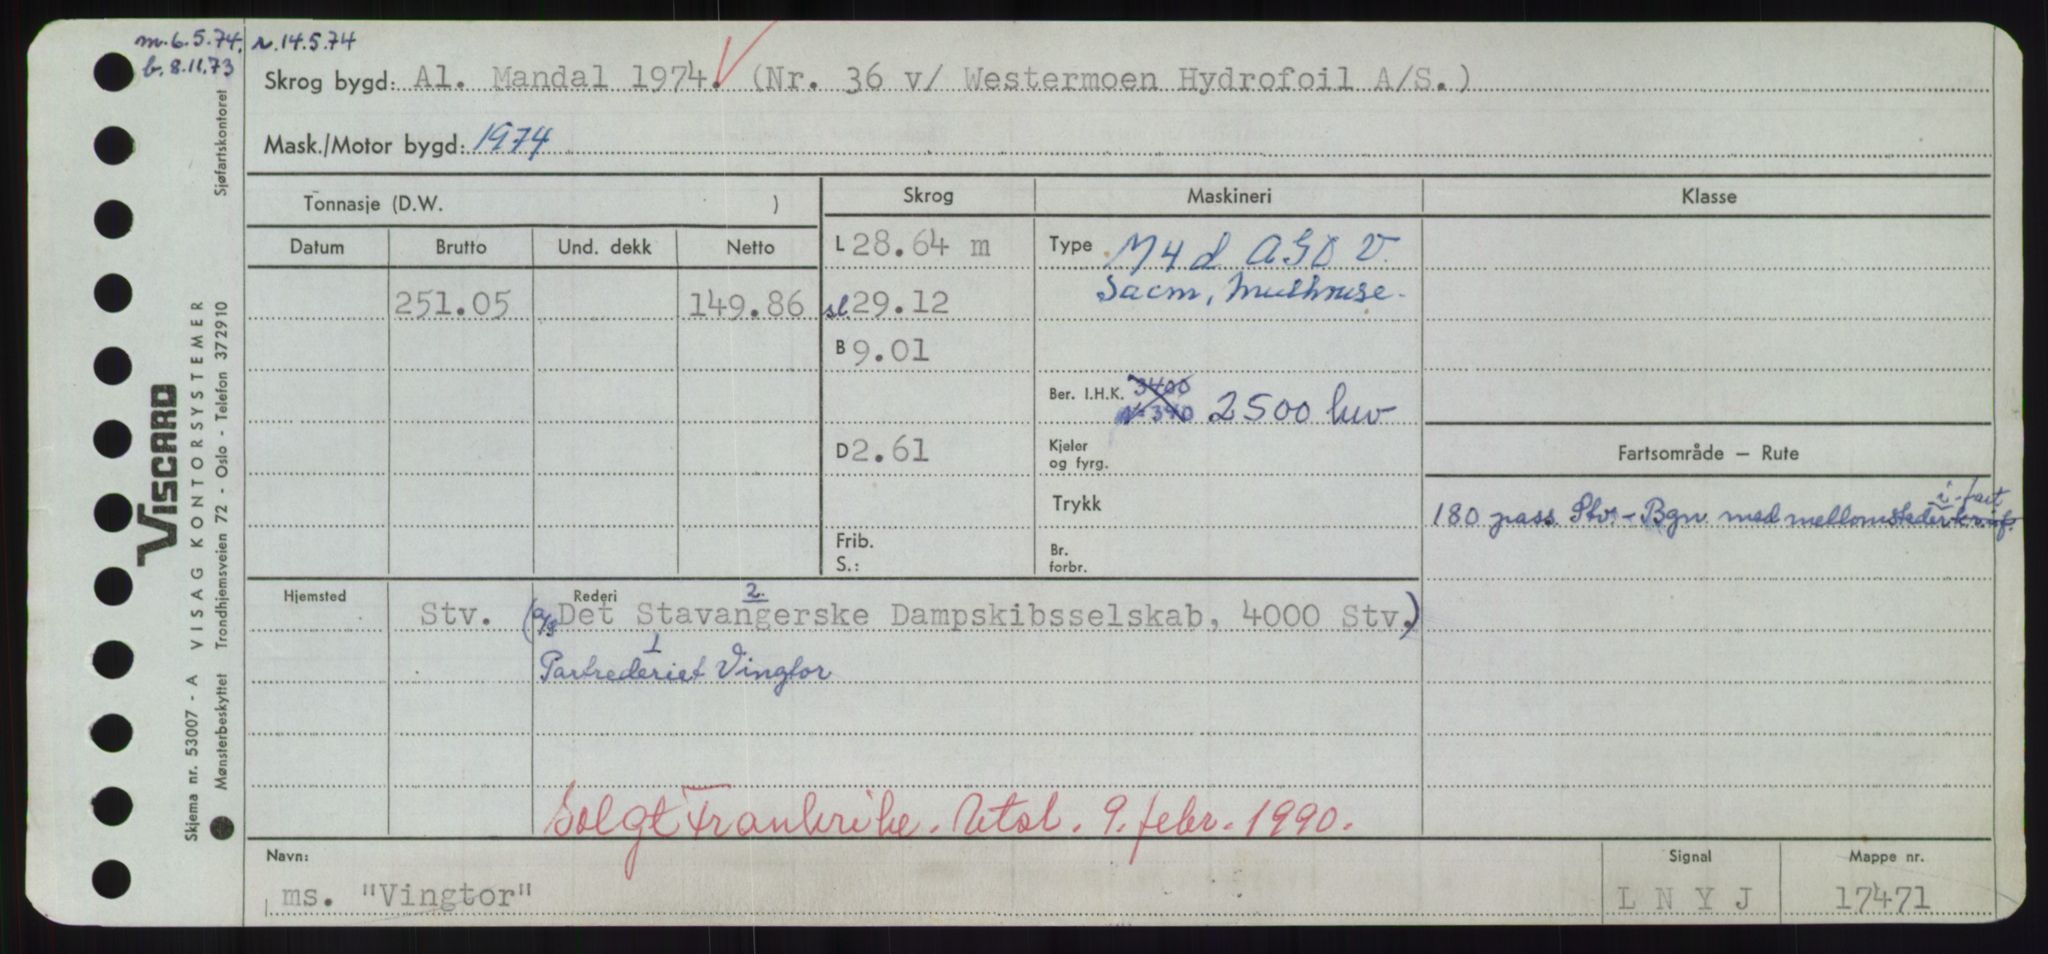 m. 6.5.74, r. 14.5.74
b. 8.11.73
Skrog bygd: Al. Mandal 1974. (Nr. 36 v/ Westermoen Hydrofoil A/S.)
Mask./Motor bygd: 1974
Tonnasje (D.W. )
Skrog Maskineri Klasse
Datum Brutto Und. dekk Netto
L 28.64 m
Type M4d AGO V.
Sacm,
251.05 149.86
sl. 29.12
B 9.01
Ber. I.H.K. 3400
N=340 2500 hw
D 2.61
Kjeler
og fyrg.
Fartsområde — Rute
Trykk
i fart
180 pass. Stv. - Bgn med mellomsteder
Frib.
S.:
Br.
forbr.
Hjemsted Rederi 2.
Stv. (a/s Det Stavangerske Dampskibsselskab, 4000 Stv.)
1
Partrederiet Vingtor
Solgt Frankrike. Utsl. 9. febr. 1990.
Navn: Signal Mappe nr.
ms. "Vingtor" L N Y J 17471
VISCARD
Skjema nr. 53007 - A VISAG KONTORSYSTEMER
Mønsterbeskyttet Trondhjemsveien 72 - Oslo - Telefon 372910 Sjøfartskontoret